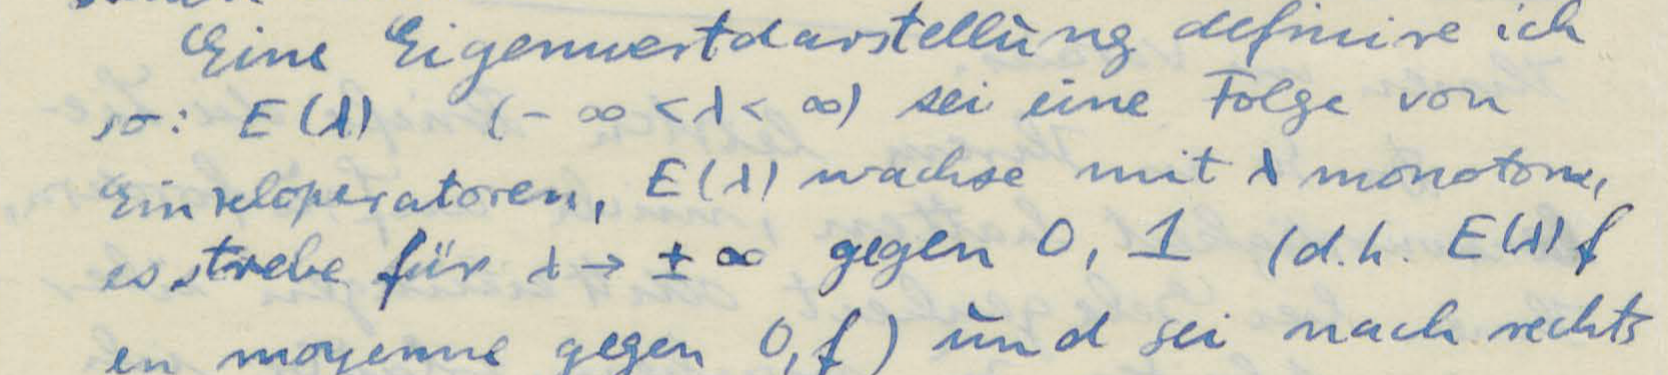 Eine Eigenwertdarstellung definire ich
so: E(λ) (- ∞ < λ < ∞) sei eine Folge von
Einzeloperatoren, E(λ) wachse mit λ monoton,
es strebe für λ → ± ∞ gegen 0, 1 (d.h. E(λ)f
en moyenne gegen 0, f) und sei nach rechts